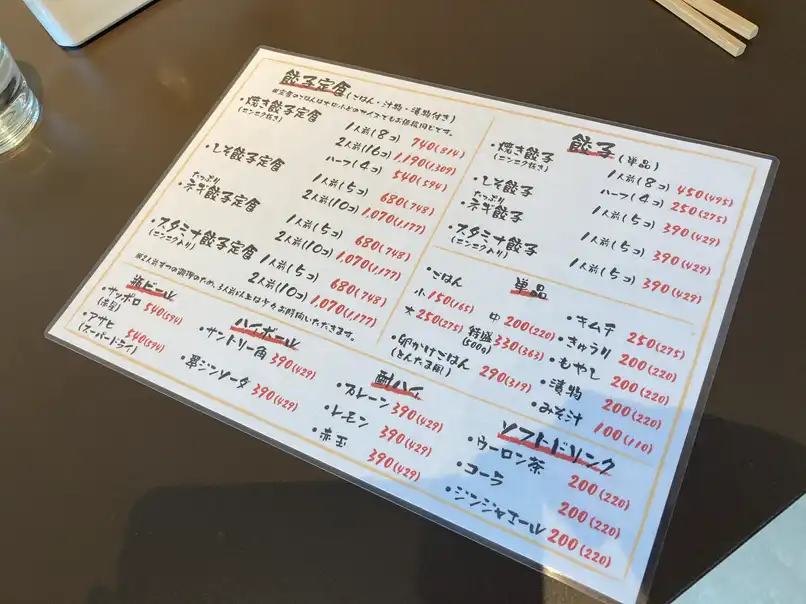 餃子定食(ごはん・汁物・漬物付き)
※定食のごはんは大中小どのサイズでもお値段同じです。
・焼き餃子定食
(ニンニク抜き)
1人前(8コ) 740(814)
2人前(16コ) 1,190(1,309)
ハーフ(4コ) 540(594)
・しそ餃子定食
1人前(5コ) 680(748)
2人前(10コ) 1,070(1,177)
たっぷり
・ネギ餃子定食
1人前(5コ) 680(748)
2人前(10コ) 1,070(1,177)
・スタミナ餃子定食
(ニンニク入り)
1人前(5コ) 680(748)
2人前(10コ) 1,070(1,177)
※2人前ずつの調理のため、3人前以上は少々お時間いただきます。
餃子(単品)
・焼き餃子
(ニンニク抜き)
1人前(8コ) 450(495)
ハーフ(4コ) 250(275)
・しそ餃子
1人前(5コ) 390(429)
たっぷり
・ネギ餃子
1人前(5コ) 390(429)
・スタミナ餃子
(ニンニク入り)
1人前(5コ) 390(429)
単品
・ごはん
小 150(165) 中 200(220)
大 250(275) 特盛 330(363)
(500g)
・卵かけごはん 290(319)
(とんたま風)
・キムチ 250(275)
・きゅうり 200(220)
・もやし 200(220)
・漬物 200(220)
・みそ汁 100(110)
瓶ビール
・サッポロ 540(594)
(赤星)
・アサヒ 540(594)
(スーパードライ)
ハイボール
・サントリー角 390(429)
・翠ジンソーダ 390(429)
酎ハイ
・プレーン 390(429)
・レモン 390(429)
・赤玉 390(429)
ソフトドリンク
・ウーロン茶 200(220)
・コーラ 200(220)
・ジンジャエール 200(220)